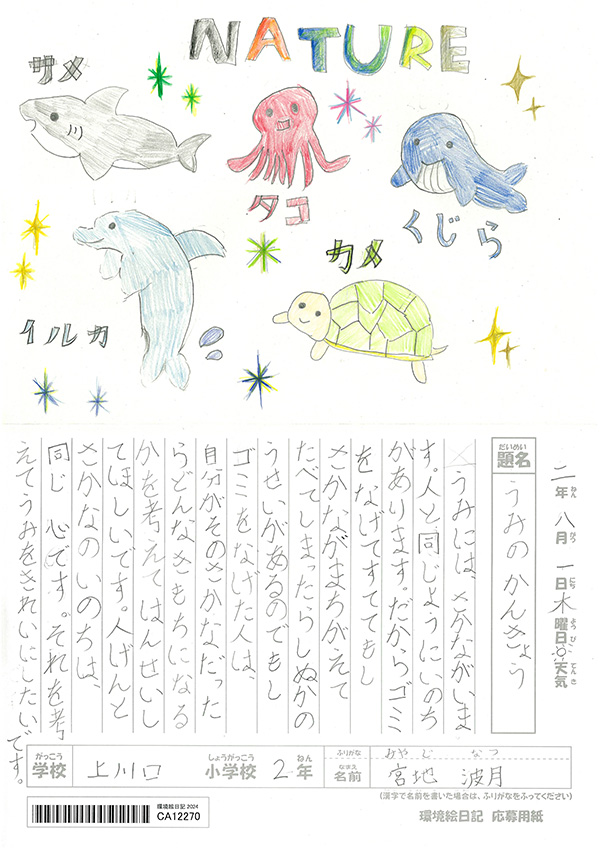 NATURE
サメ
タコ
くじら
イルカ
カメ
二年 八月 一日 木曜日 天気
ねん がつ にち ようび てんき
だいめい
題名
うみのかんきょう
うみには、さかながいま
す。人と同じようにいのち
があります。だからゴミ
をなげてすててもし
さかながまちがそて
たべてしまったらしぬかの
うせいがあるのでもし
ゴミをなげた人は、
自分がそのさかなだった
らどんなきもちになる
かを考えてはんせいし
てほしいです。人げんと
さかなのいのちは、
同じ心です。それを考
えてうみをきれいにしたいです。
がっこう しょうがっこう ねん
学校 上川口 小学校 2年
ふりがな みやじ なつ
なまえ
名前 宮地 波月
(漢字で名前を書いた場合は、ふりがなをふってください)
環境絵日記 2024
CA12270
環境絵日記 応募用紙